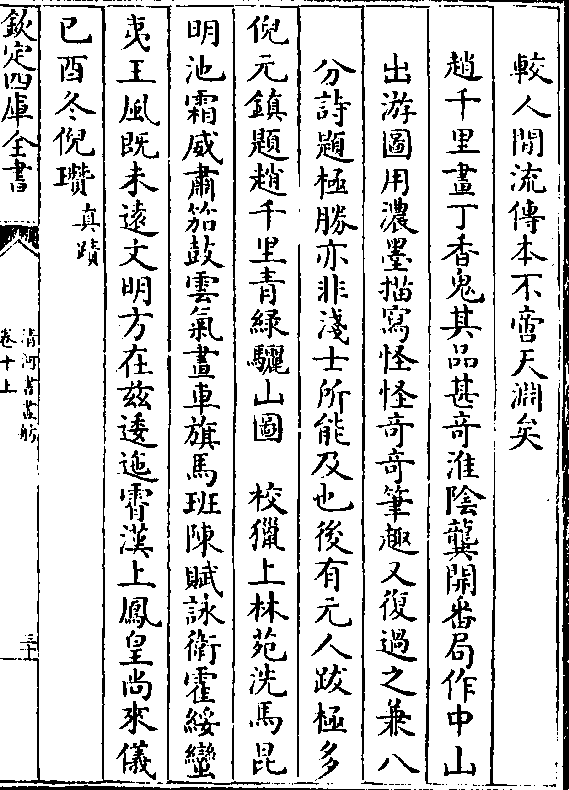 較人間流傳本不啻天淵矣
趙千里畫丁香鬼其品甚奇淮陰龔開畨局作中山
出游圖用濃墨描寫怪怪奇奇筆趣又復過之兼八
分詩題極勝亦非淺士所能及也後有元人跋極多
倪元鎮題趙千里青綠驪山圖　校獵上林苑洗馬昆
明池霜威肅笳鼓雲氣畫車旗馬班陳賦詠衛霍綏蠻
夷王風既未遠文明方在兹逶迤霄漢上鳳皇尚來儀
已酉冬倪瓚真蹟
欽定四庫全書
清河書畫舫
卷十上
三十